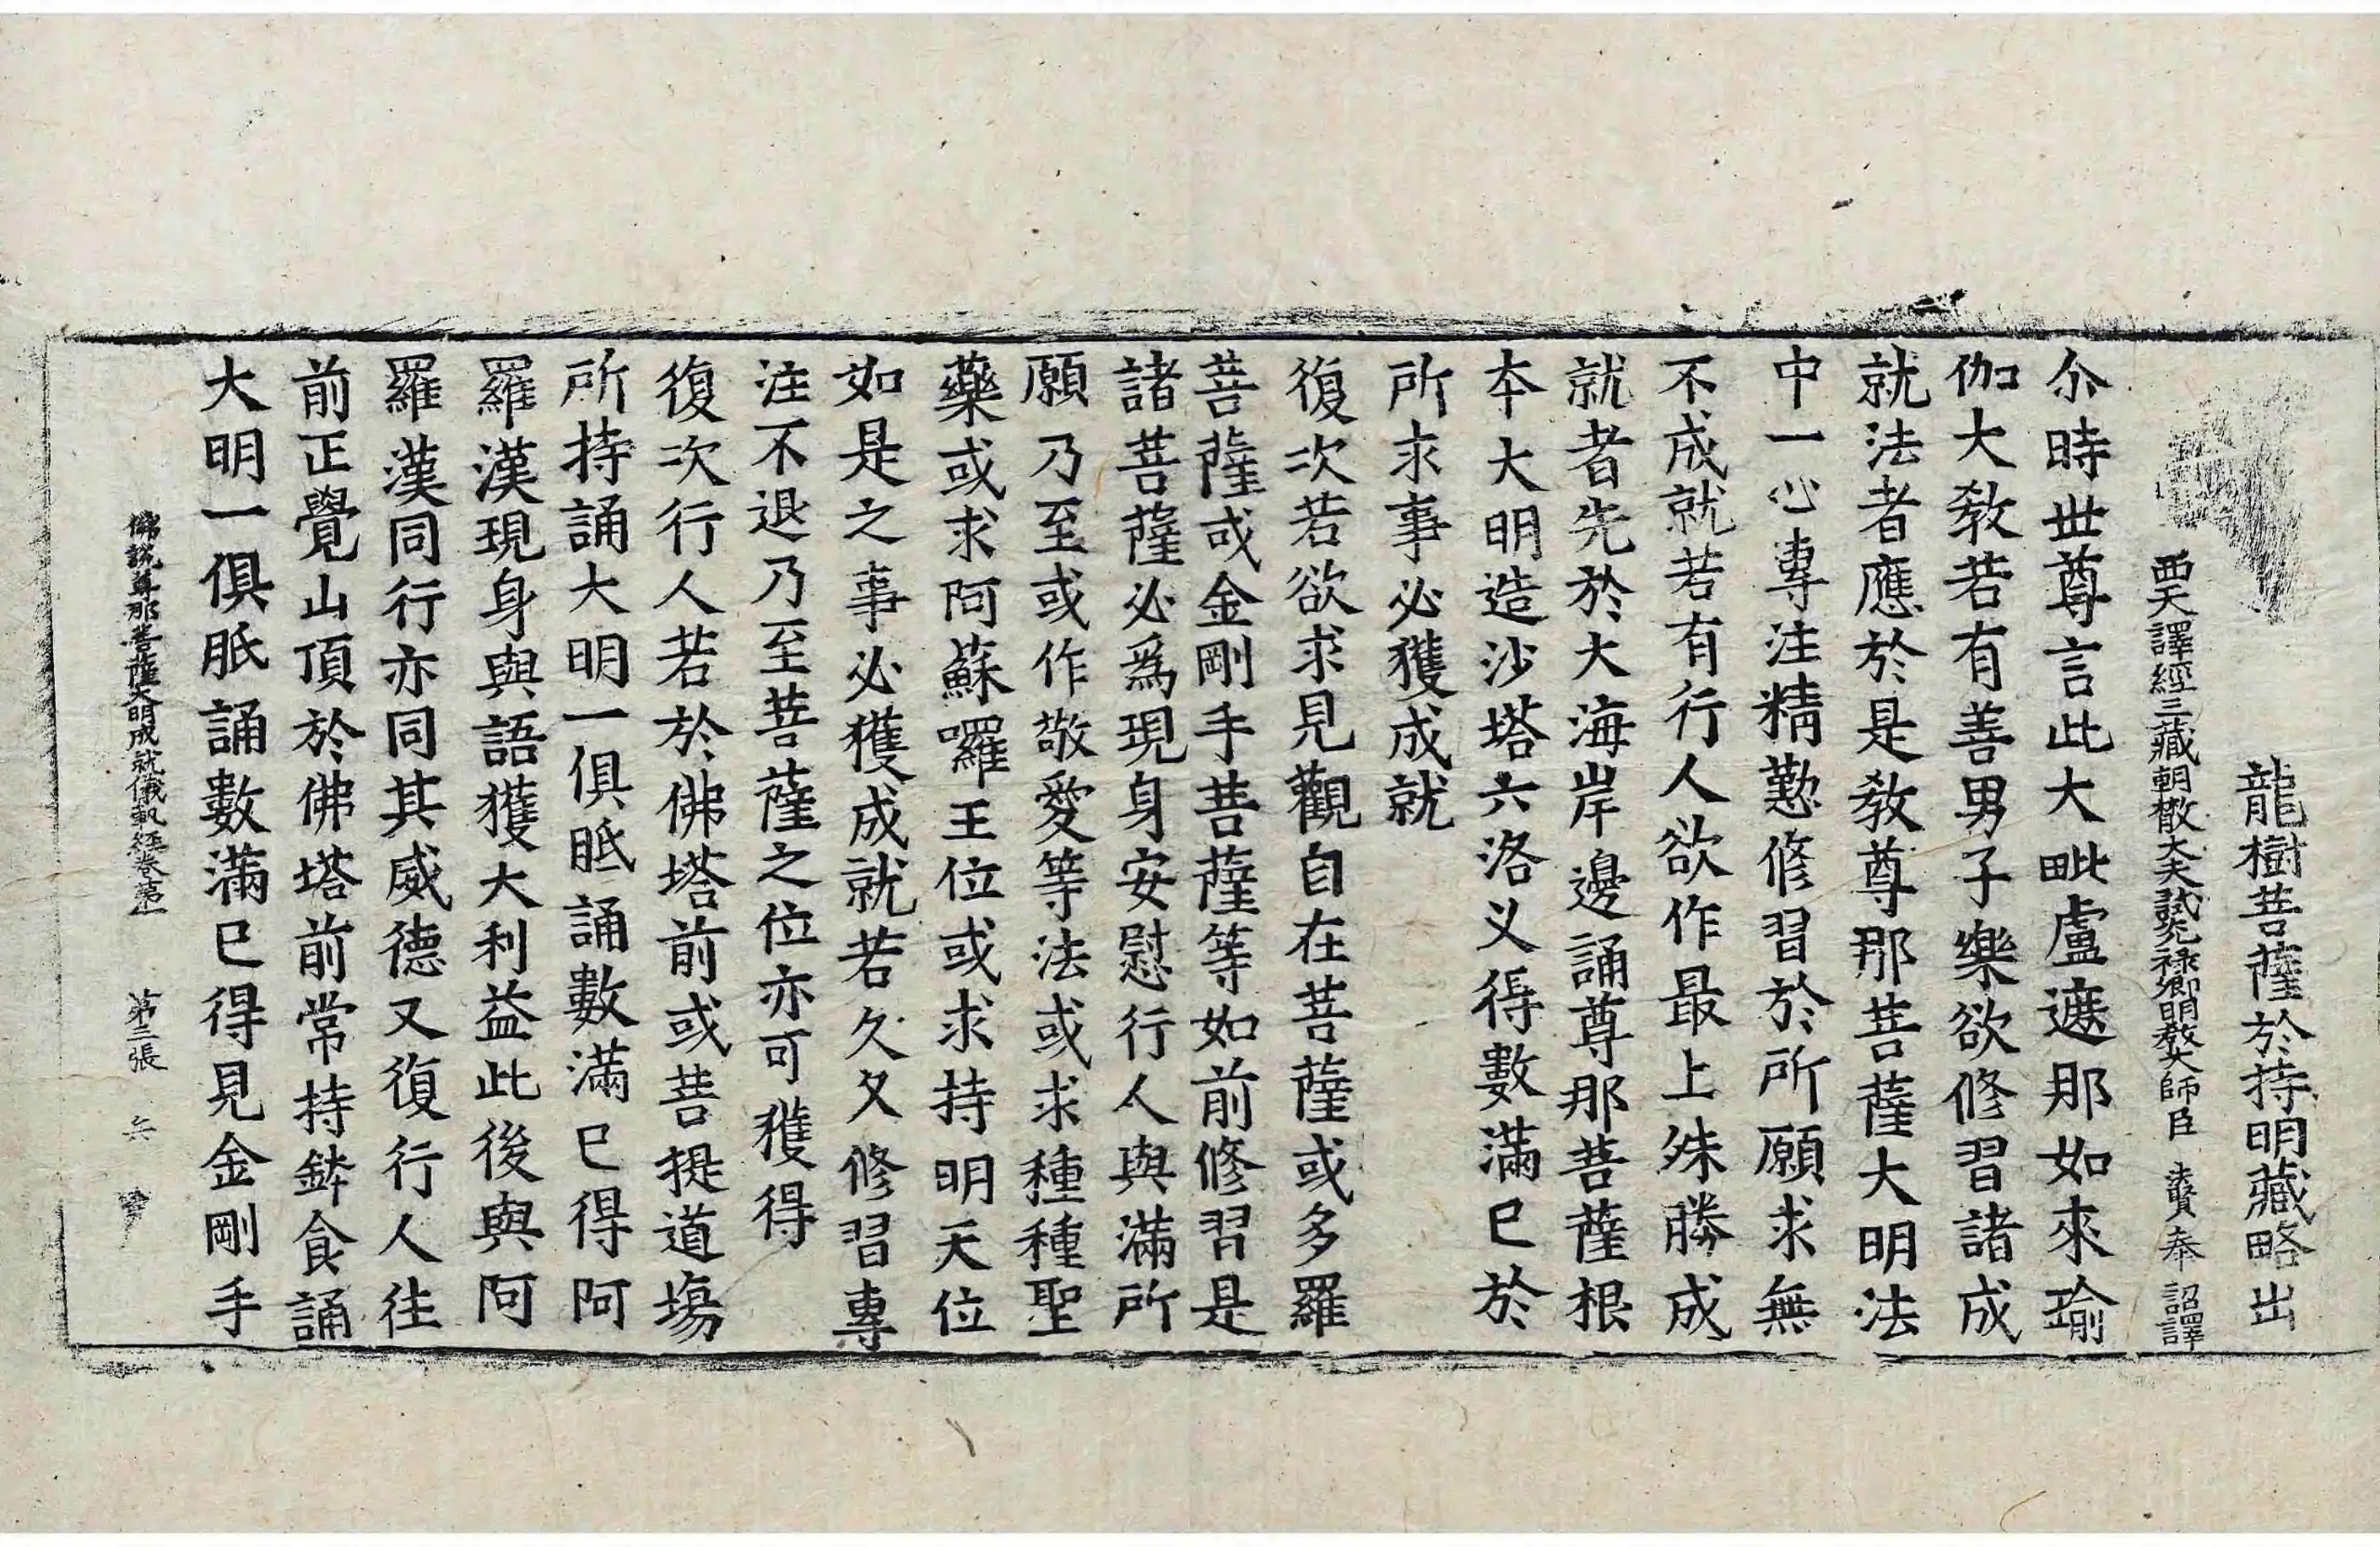 龍樹菩薩於持明藏略出
西天譯經三藏朝散大夫試光祿卿明教大師臣 法賢奉 詔譯
尒時世尊言此大毗盧遮那如來瑜
伽大教若有善男子樂欲修習諸成
就法者應於是教尊那菩薩大明法
中一心專注精懃修習於所願求無
不成就若有行人欲作最上殊勝成
就者先於大海岸邊誦尊那菩薩根
本大明造沙塔六洛义得數滿已於
所求事必獲成就
復次若欲求見觀自在菩薩或多羅
菩薩或金剛手菩薩等如前修習是
諸菩薩必爲現身安慰行人與滿所
願乃至或作敬愛等法或求種種聖
藥或求阿蘇囉王位或求持明天位
如是之事必獲成就若久久修習專
注不退乃至菩薩之位亦可獲得
復次行人若於佛塔前或菩提道場
所持誦大明一俱胝誦數滿已得阿
羅漢現身與語獲大利益此後與阿
羅漢同行亦同其威德又復行人往
前正覺山頂於佛塔前常持鉢食誦
大明一俱胝誦數滿已得見金剛手
佛說尊那菩薩大明成就儀軌經卷第一 第三張